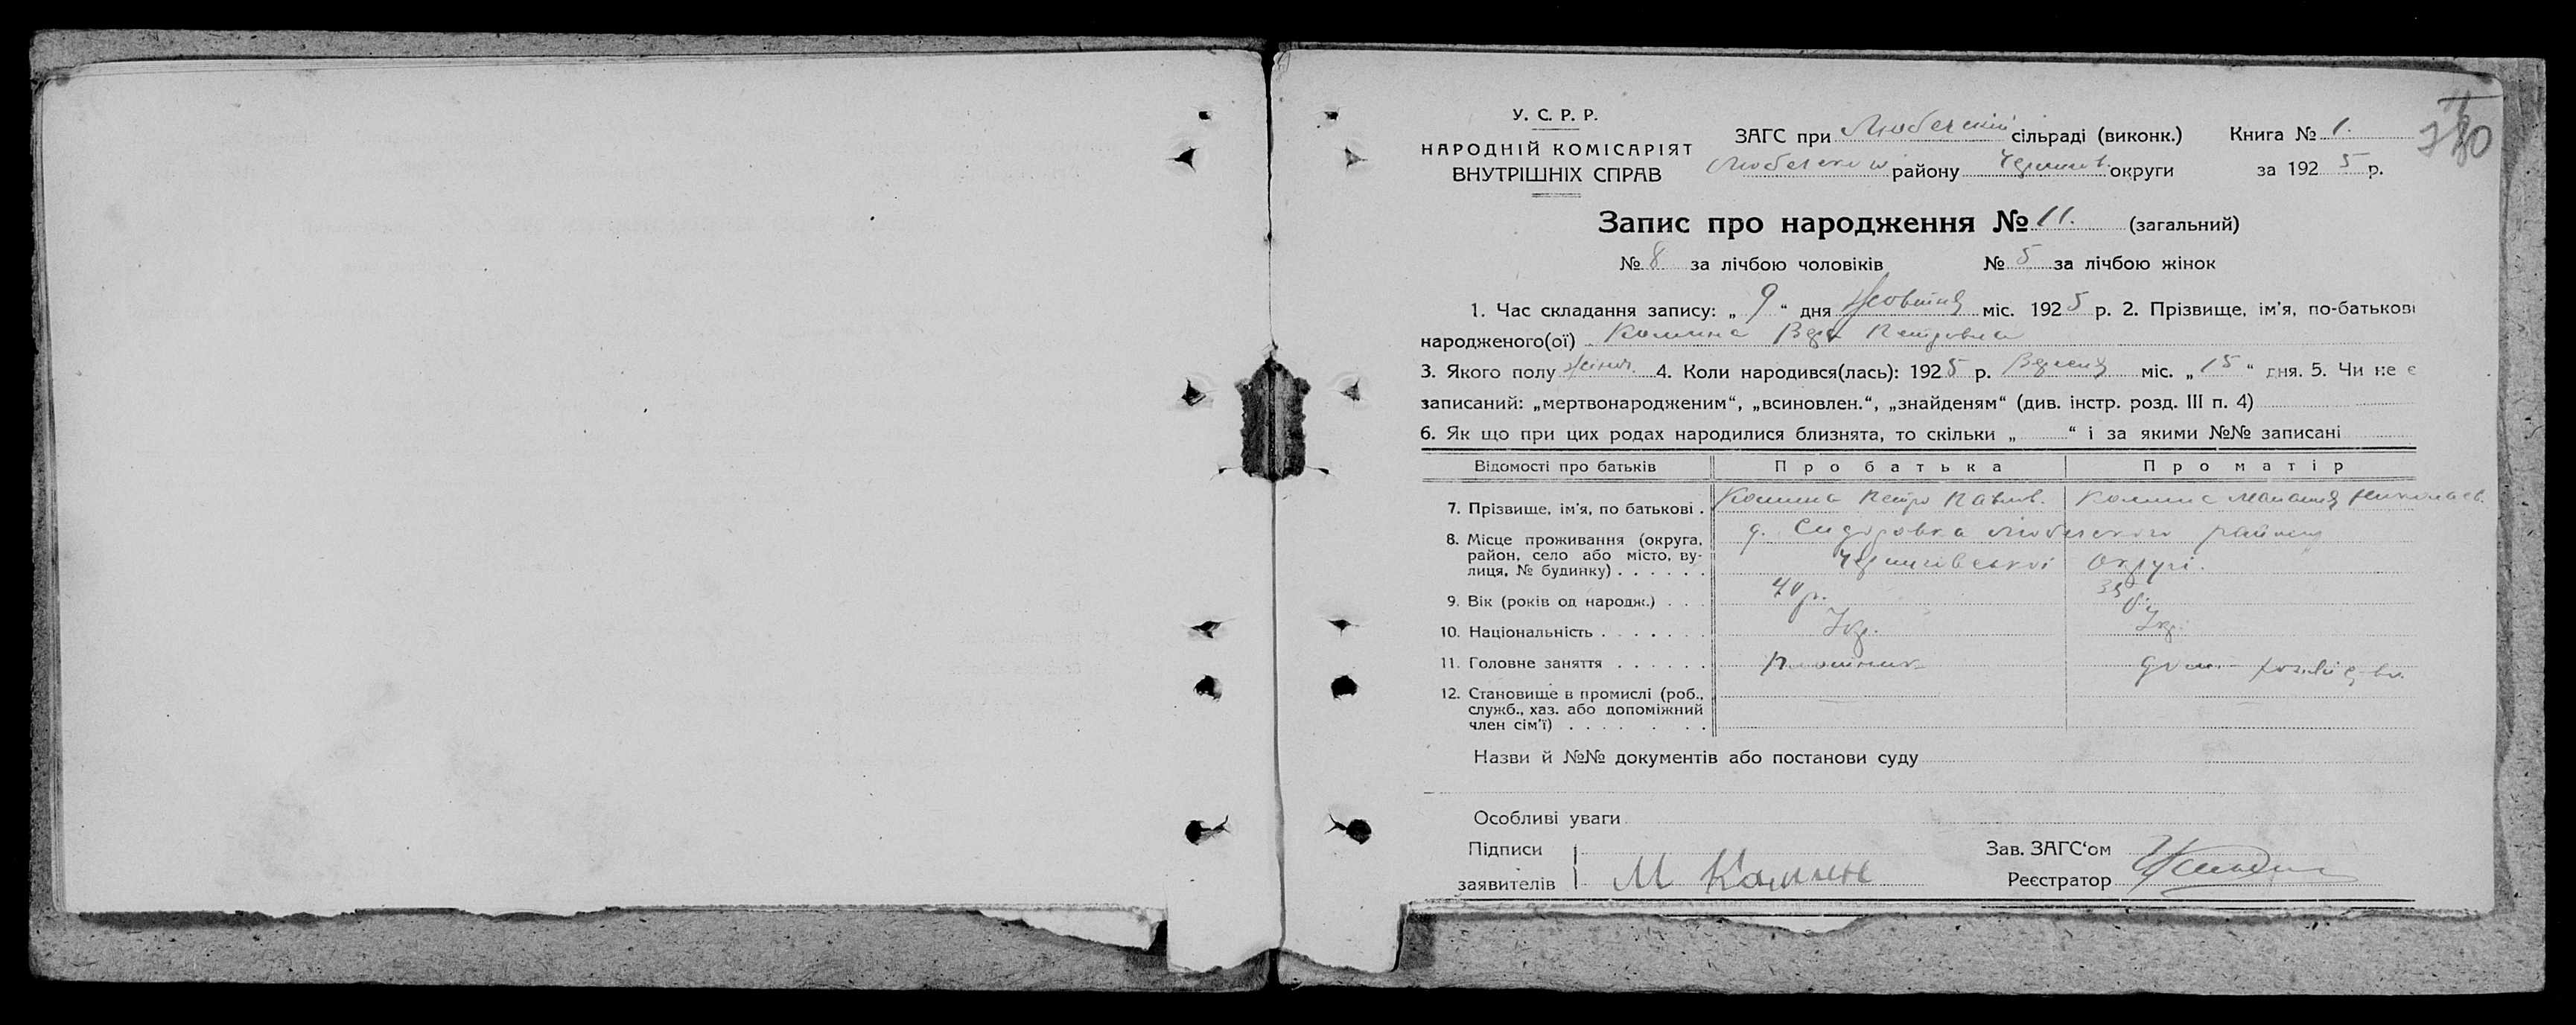 У. С. Р. Р.
НАРОДНІЙ КОМІСАРІЯТ
ВНУТРІШНІХ СПРАВ
ЗАГС при Любечскій сільраді (виконк.) Книга № 1.
району округи за 1925 р.
Запис про народження № 11. (загальний)
№ 8 за лічбою чоловіків № 5 за лічбою жінок
1. Час складання запису: „ 9 “ дня Жовтня міс. 1925 р. 2. Прізвище, ім'я, по-батькові
народженого(ої) Вера Петровна
3. Якого полу жіноч. 4. Коли народився(лась): 1925 р. Вересня міс. „ 15 “ дня. 5. Чи не є
записаний: „мертвонародженим“, „всиновлен.“, „знайденям“ (див. інстр. розд. III п. 4)
6. Як що при цих родах народилися близнята, то скільки „ “ і за якими №№ записані
Відомості про батьків Про батька Про матір
7. Прізвище, ім'я, по батькові . Петро Павлов. Николаев.
8. Місце проживання (округа, район, село або місто, вулиця, № будинку) . . . . . . д. Сидоровка Любечского району
Чернигівської Округи.
9. Вік (років од народж.) . . . 40 р. 35 р.
10. Національність . . . . . . . Укр. Укр.
11. Головне заняття . . . . . . Плотник дом.
12. Становище в промислі (роб., служб., хаз. або допоміжний член сім'ї) . . . . . . .
Назви й №№ документів або постанови суду
Особливі уваги
Підписи Зав. ЗАГС‘ом
заявителів М Реєстратор